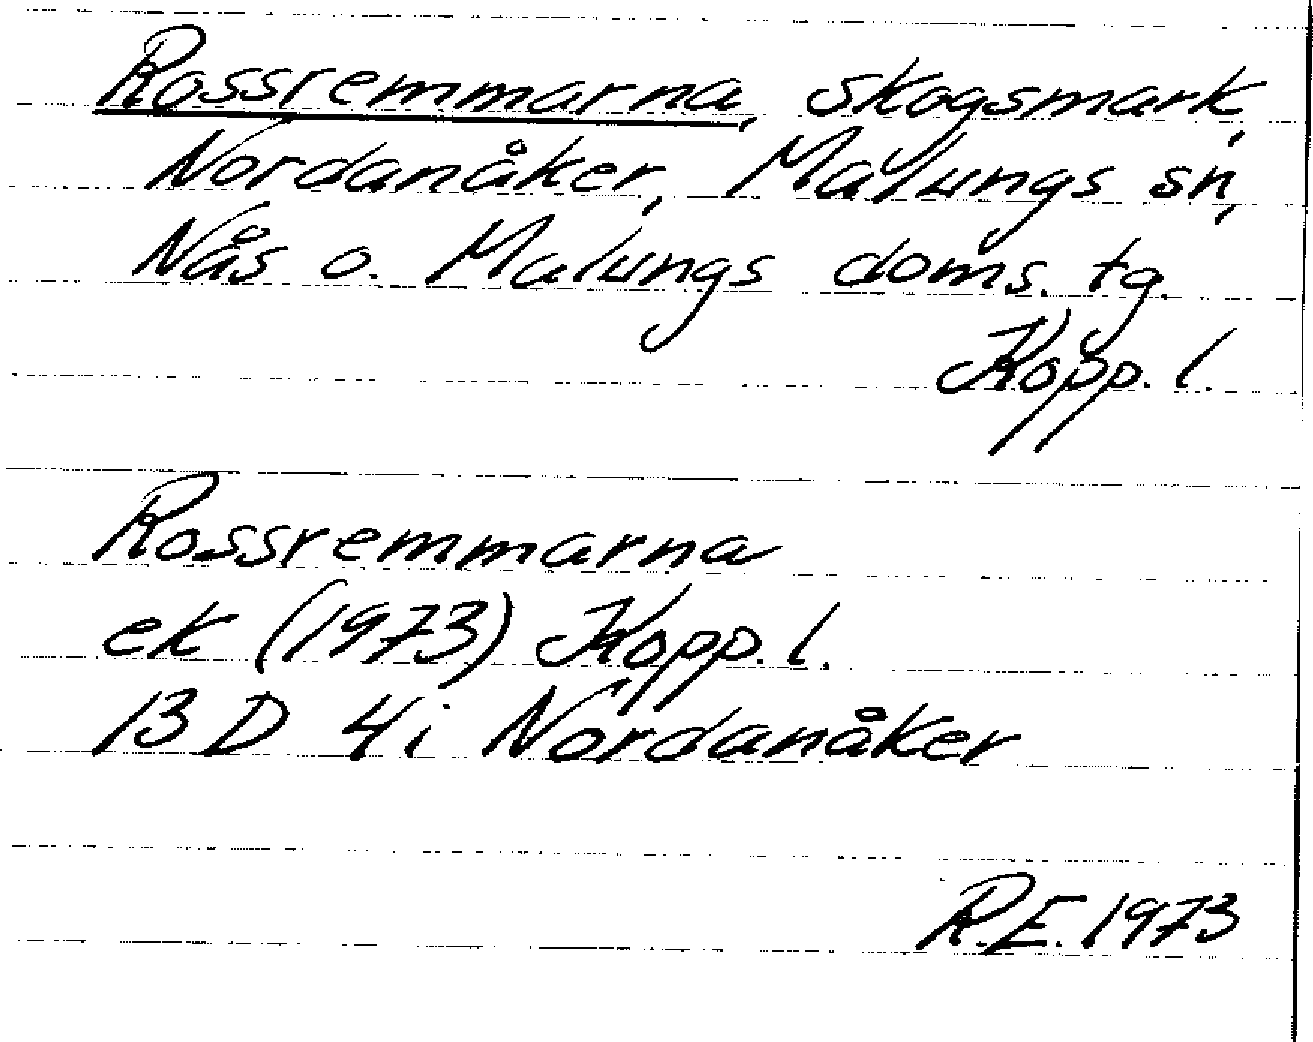 Rossremmarna, skogsmark,
Nordanåker, Malungs sn,
Nås o. Malungs doms. tg.
Kopp. l.
Rossremmarna
ek (1973) Kopp. l.
13 D 4i Nordanåker
R.E. 1973